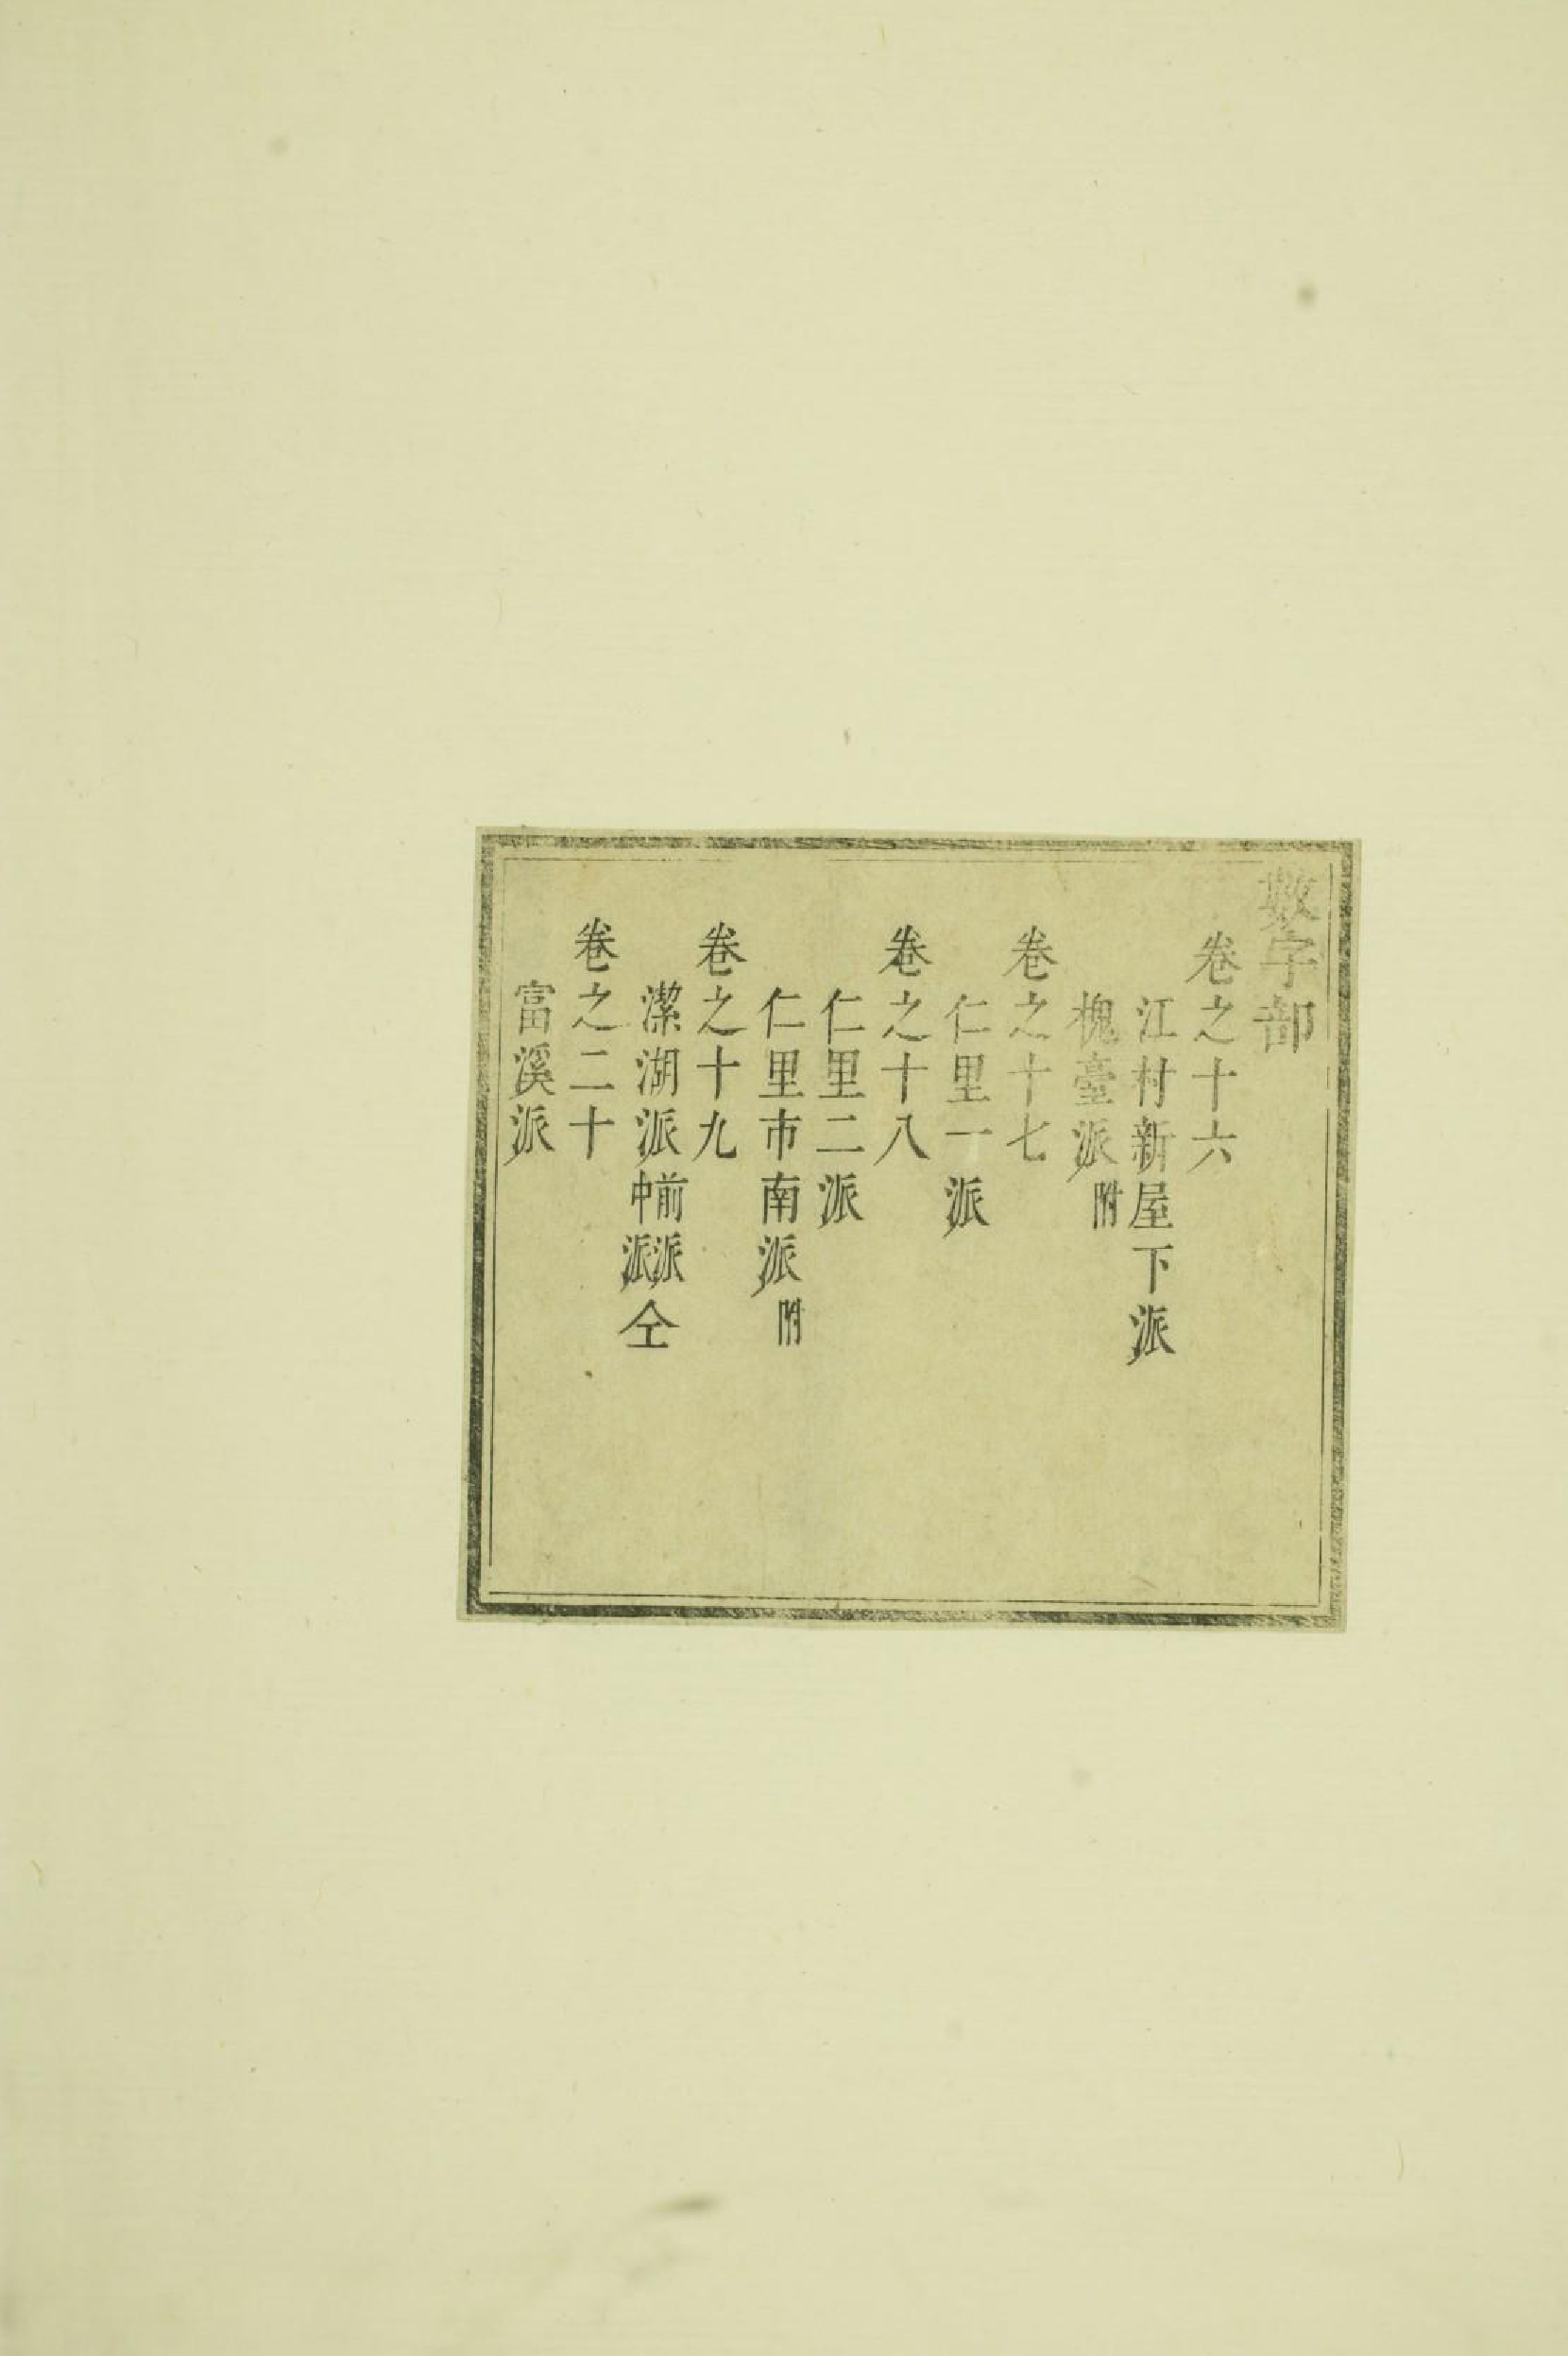 數字部
卷之十六
江村新屋下派
槐臺派附
卷之十七
仁里一派
卷之十八
仁里二派
仁里市南派附
卷之十九
潔湖派前派中派仝
卷之二十
富溪派